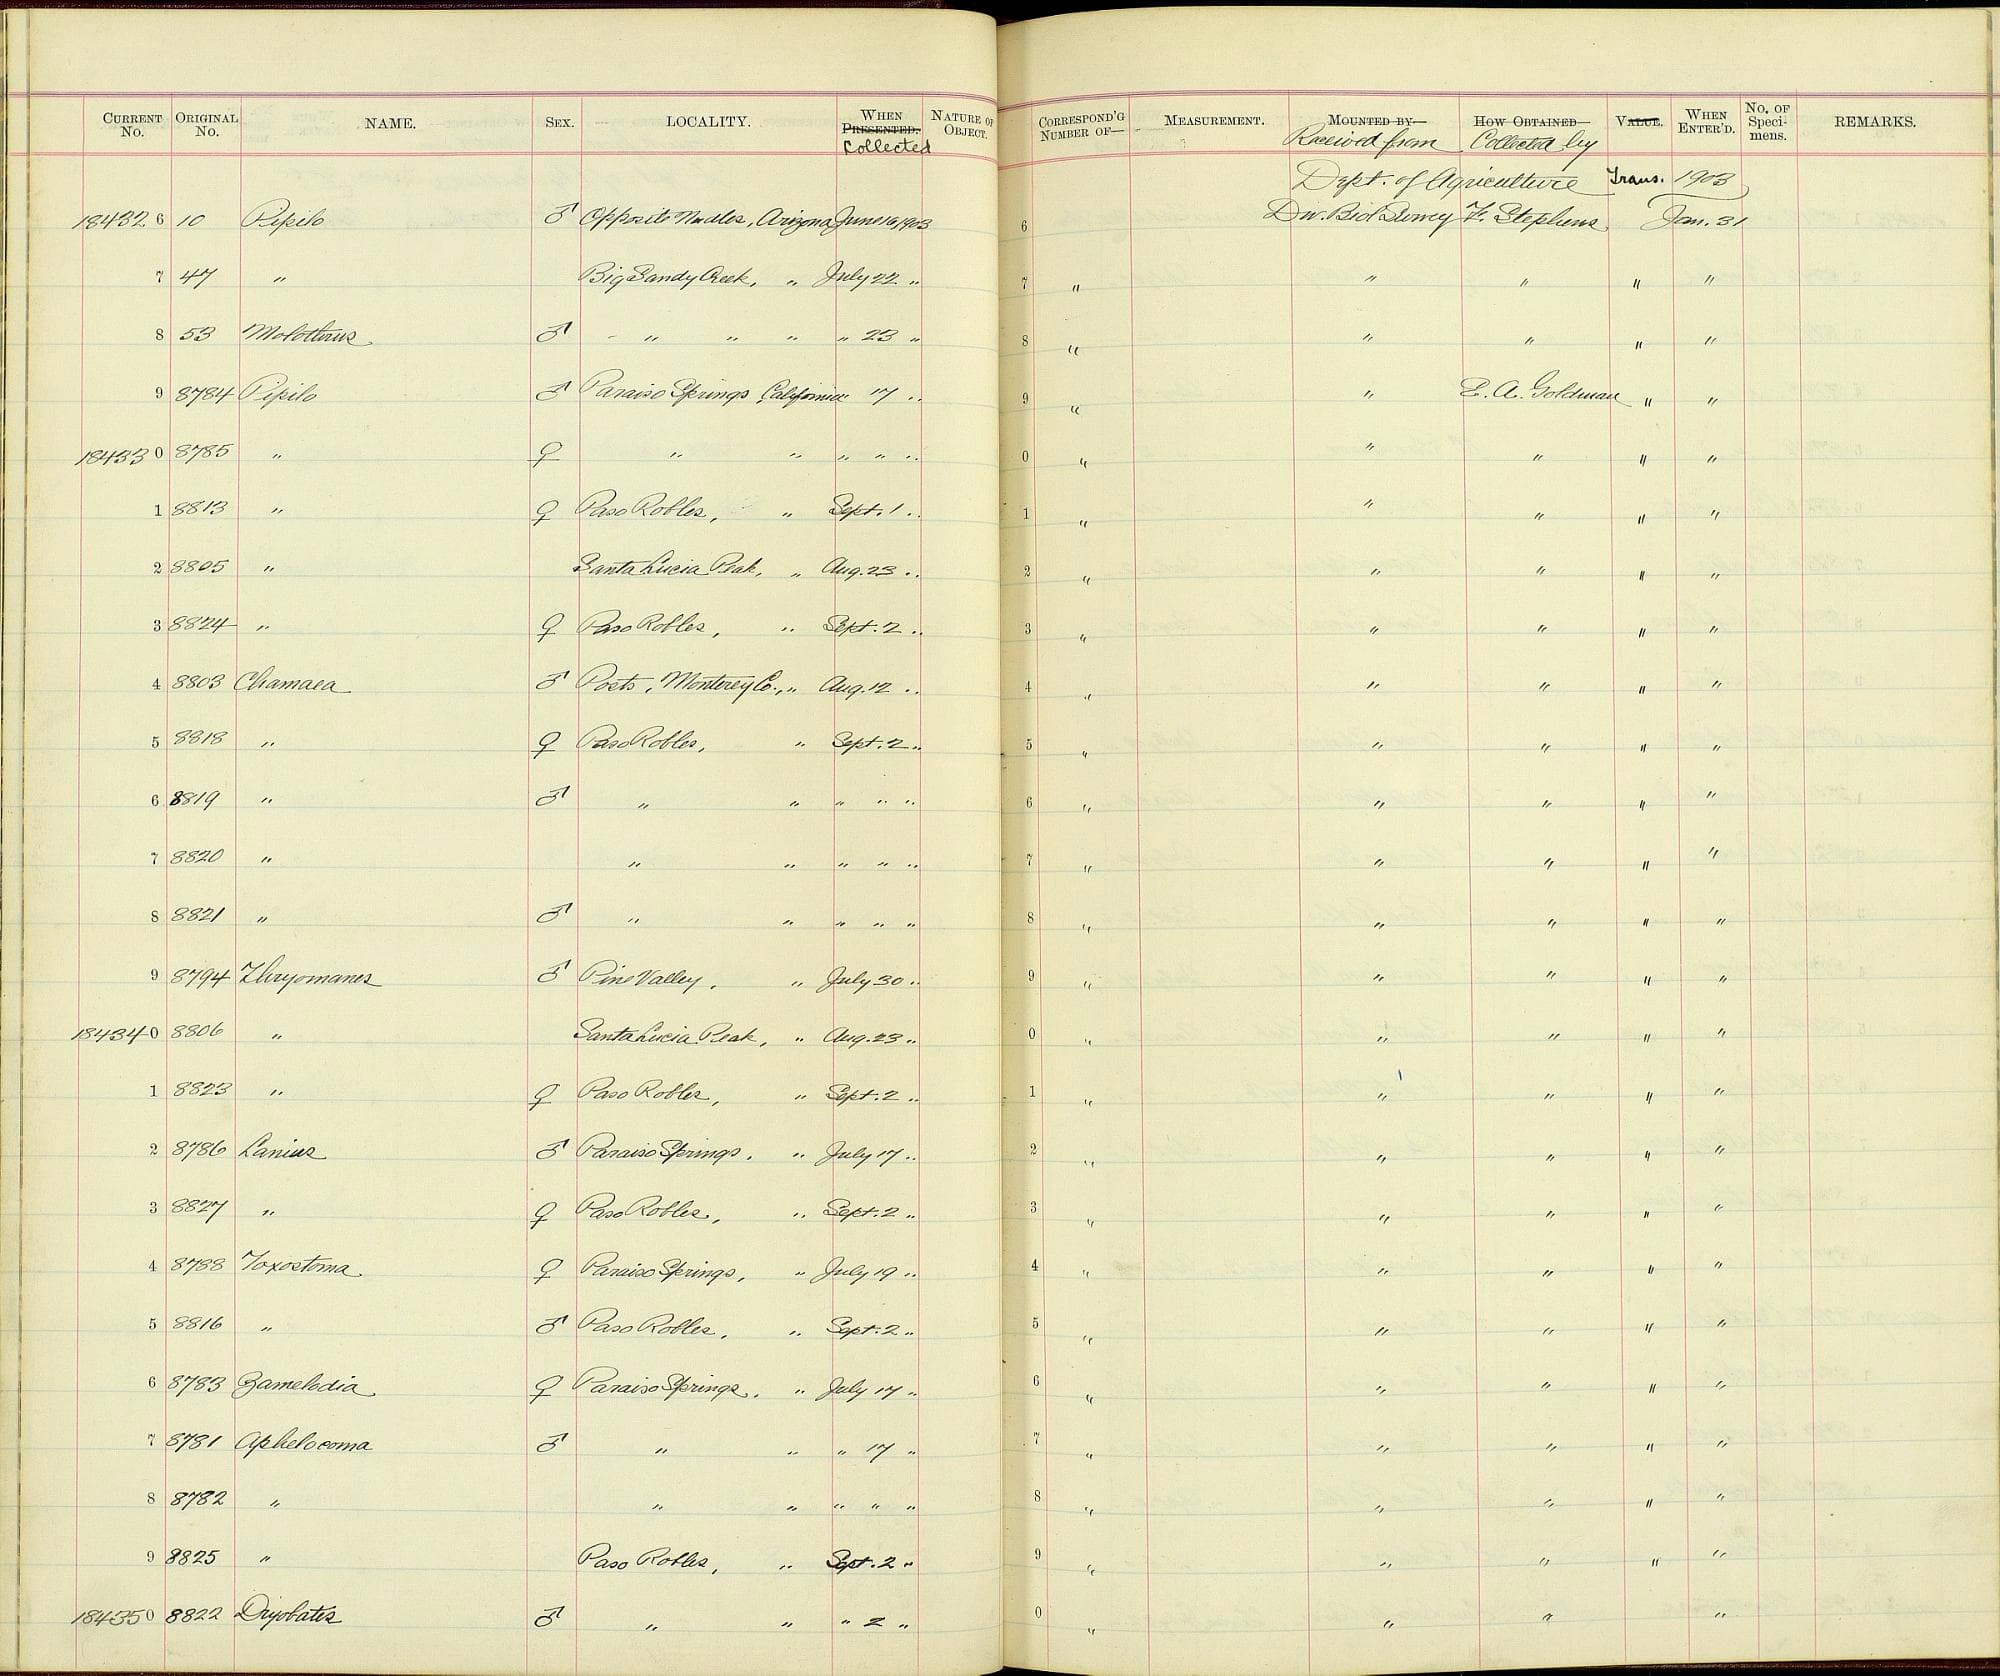 CURRENT No. ORIGINAL No. NAME. SEX. LOCALITY. WHEN PRESENTED. Collected NATURE OF OBJECT. CORRESPOND'G NUMBER OF— MEASUREMENT. MOUNTED BY— Received from HOW OBTAINED— Collected by VALUE. WHEN ENTER'D. No. OF Specimens. REMARKS.
Dept. of Agriculture Trans. 1903
184326 10 Pipilo ♂ Opposite Needles, Arizona June 16, 1903 6 Div. Biol Survey F. Stephens Jan. 31
7 47 " Big Sandy Creek, " July 22 " 7 " " " " "
8 53 Molothrus ♂ " " " " 23 " 8 " " " " "
9 8784 Pipilo ♂ Paraiso Springs, California " 17 " 9 " " E. A. Goldman " "
184330 8785 " ♀ " " " " " 0 " " " " "
1 8813 " ♀ Paso Robles, " Sept. 1 " 1 " " " " "
2 8805 " Santa Lucia Peak, " Aug. 23 " 2 " " " " "
3 8824 " ♀ Paso Robles, " Sept. 2 " 3 " " " " "
4 8803 Chamaea ♂ Posts, Monterey Co., " Aug. 12 " 4 " " " " "
5 8818 " ♀ Paso Robles, " Sept. 2 " 5 " " " " "
6 8819 " ♂ " " " " " 6 " " " " "
7 8820 " " " " " " 7 " " " " "
8 8821 " ♂ " " " " " 8 " " " " "
9 8794 Thryomanes ♂ Pine Valley, " July 30 " 9 " " " " "
184340 8806 " Santa Lucia Peak, " Aug. 23 " 0 " " " " "
1 8823 " ♀ Paso Robles, " Sept. 2 " 1 " " " " "
2 8786 Lanius ♂ Paraiso Springs, " July 17 " 2 " " " " "
3 8827 " ♀ Paso Robles, " Sept. 2 " 3 " " " " "
4 8788 Toxostoma ♀ Paraiso Springs, " July 19 " 4 " " " " "
5 8816 " ♂ Paso Robles, " Sept. 2 " 5 " " " " "
6 8783 Zamelodia ♀ Paraiso Springs, " July 17 " 6 " " " " "
7 8781 Aphelocoma ♂ " " " 17 " 7 " " " " "
8 8782 " " " " " " 8 " " " " "
9 8825 " Paso Robles, " Sept. 2 " 9 " " " " "
184350 8822 Dryobates ♂ " " " 2 " 0 " " " "